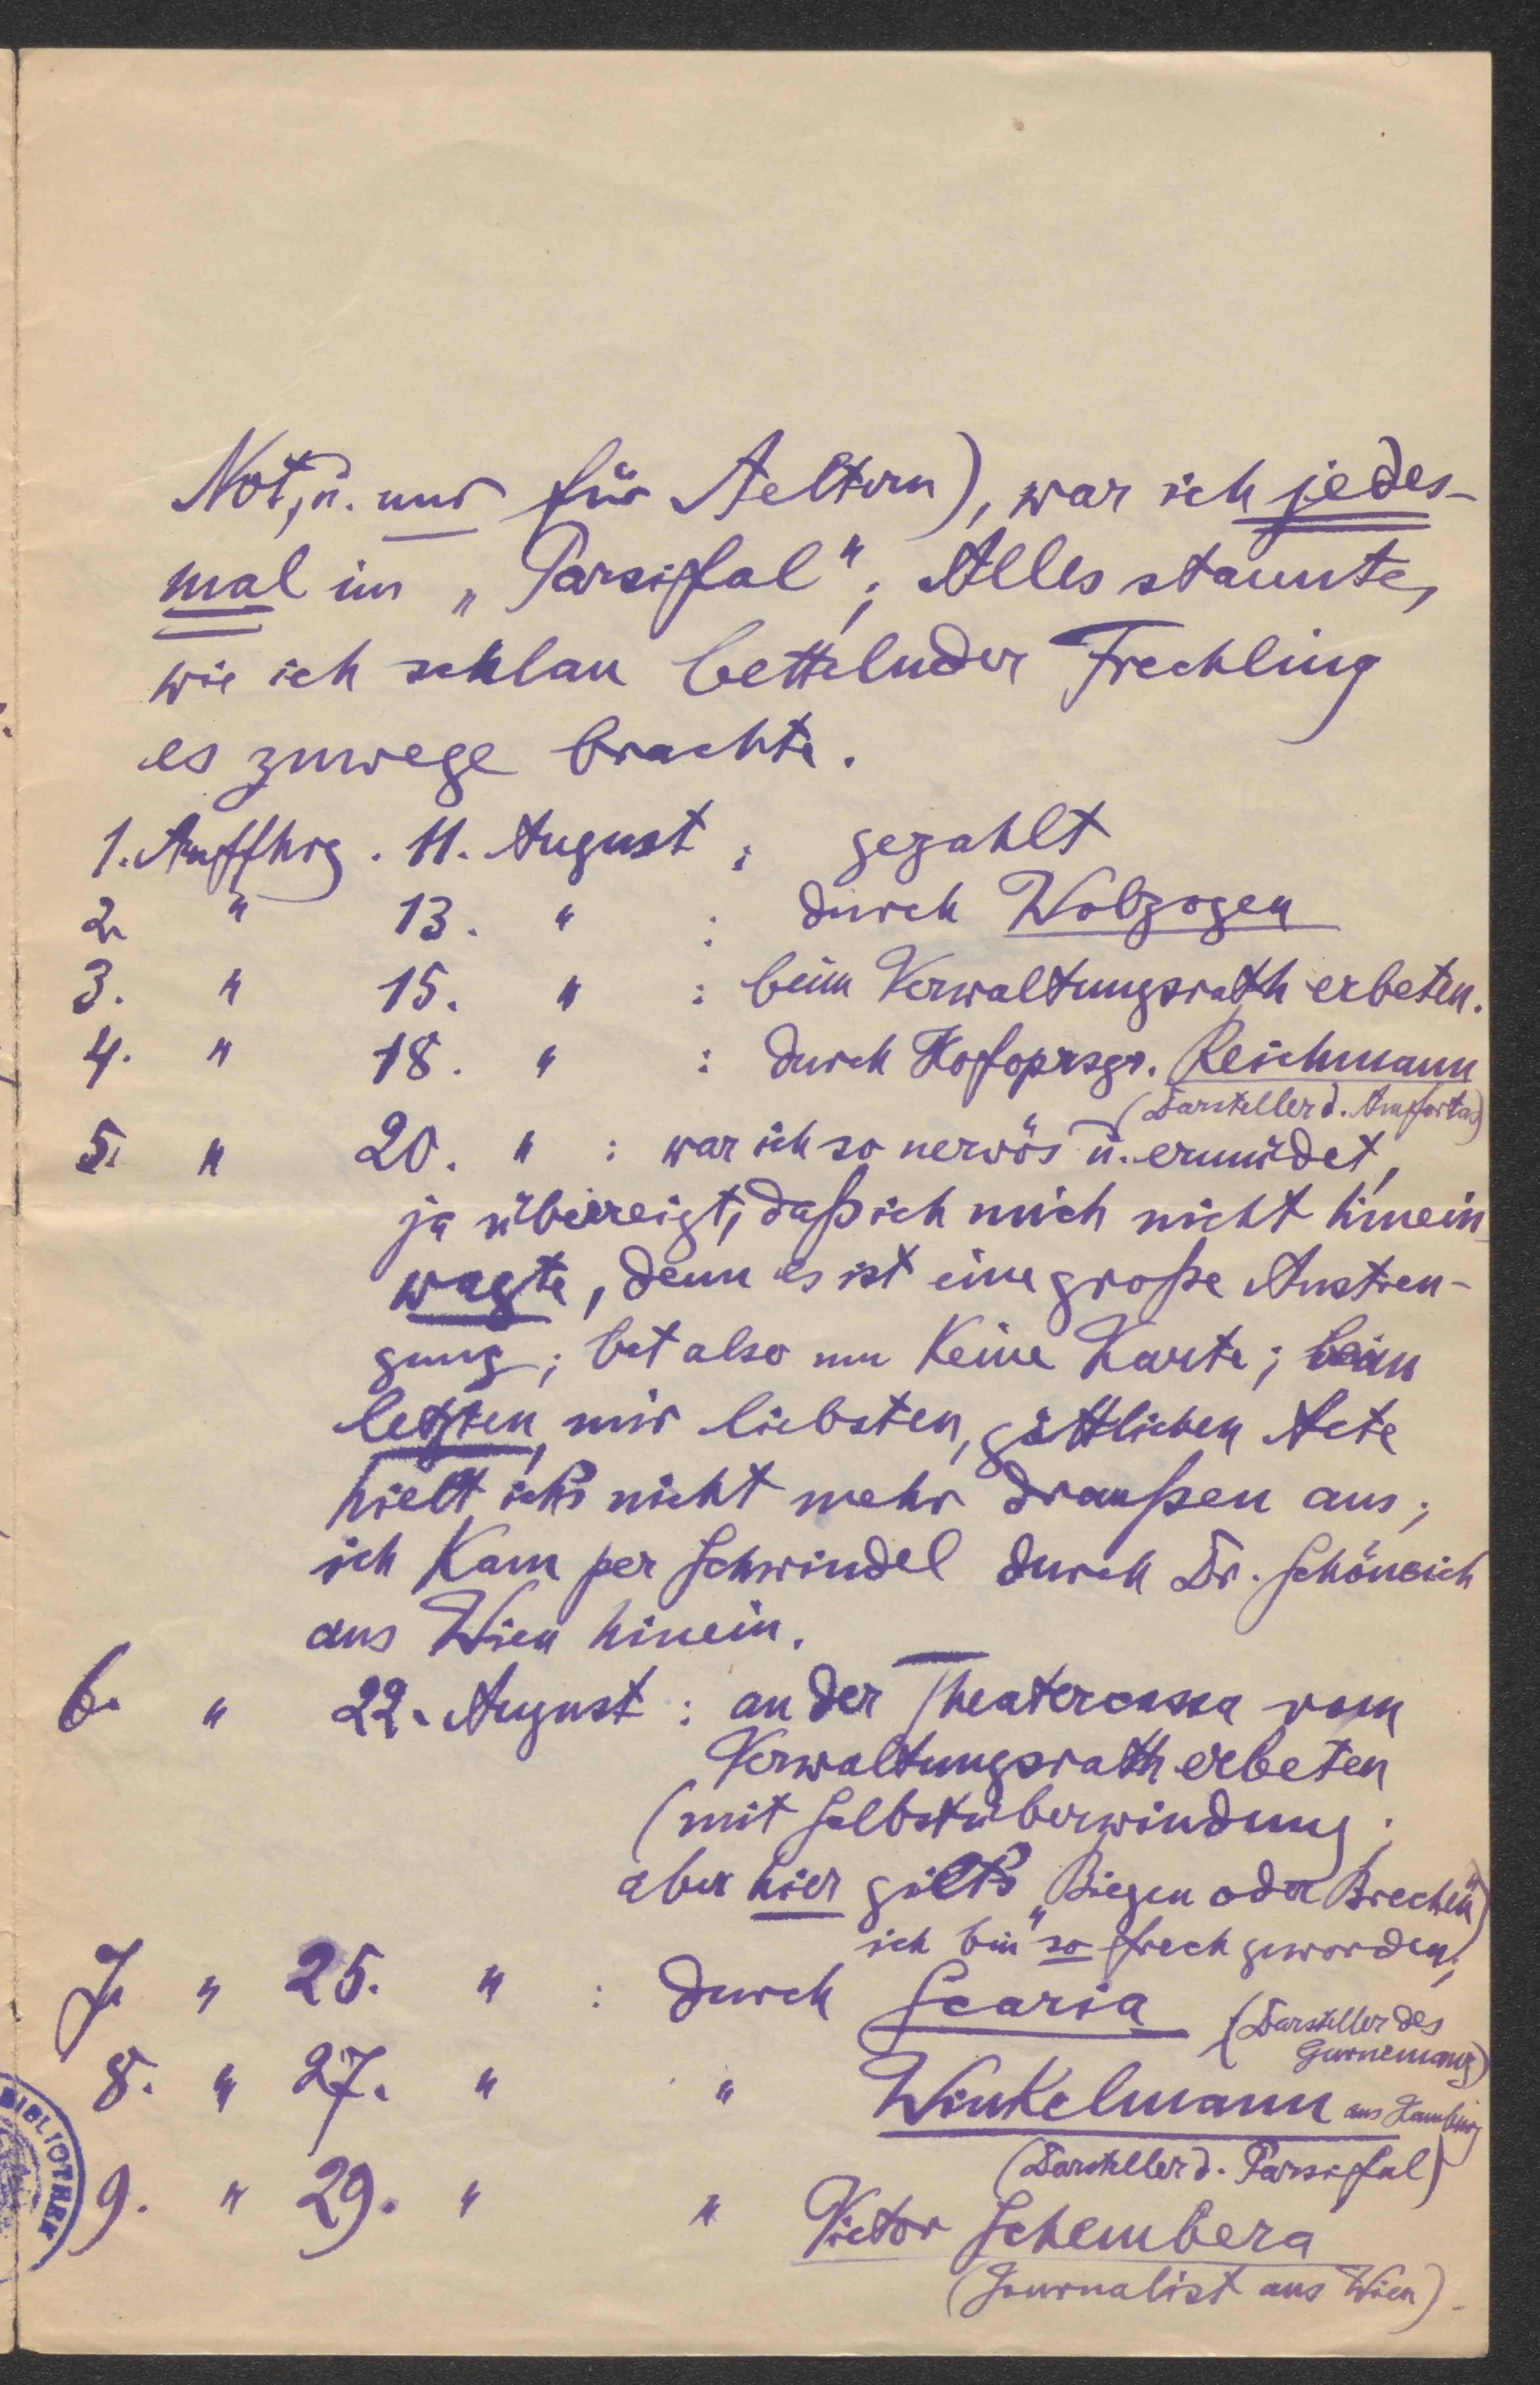 Not, u. nur für Aeltern), war ich jedes-
mal im „Parsifal“; Alles staunte,
wie ich schlau bettelnder Frechling
es zuwege brachte.
1. Auffhrg. 11. August : gezahlt
2. " 13. " : durch Wolzogen
3. " 15. " : beim Verwaltungsrath erbeten.
4. " 18. " : durch Hofoprsgr. Reichmann
(Darsteller d. Amfortas)
5. " 20. " : war ich so nervös u. ermüdet,
ja überreizt, daß ich mich nicht hinein
wagte, denn es ist eine große Anstren-
gung; bat also um keine Karte; beim
letzten, mir liebsten, göttlichen Acte
hielt ich's nicht mehr draußen aus;
ich kam per Schwindel durch Dr. Schönaich
aus Wien hinein.
6. " 22. August : an der Theatercassa vom
Verwaltungsrath erbeten
(mit Selbstüberwindung;
aber hier gilt's „Biegen oder Brechen“)
ich bin so frech geworden;
7. " 25. " : durch Scaria (Darsteller des
Gurnemanz)
8. " 27. " " Winkelmann aus Hamburg
(Darsteller d. Parsifal)
9. " 29. " " Victor Schembera
(Journalist aus Wien).
BIBLIOTHEK